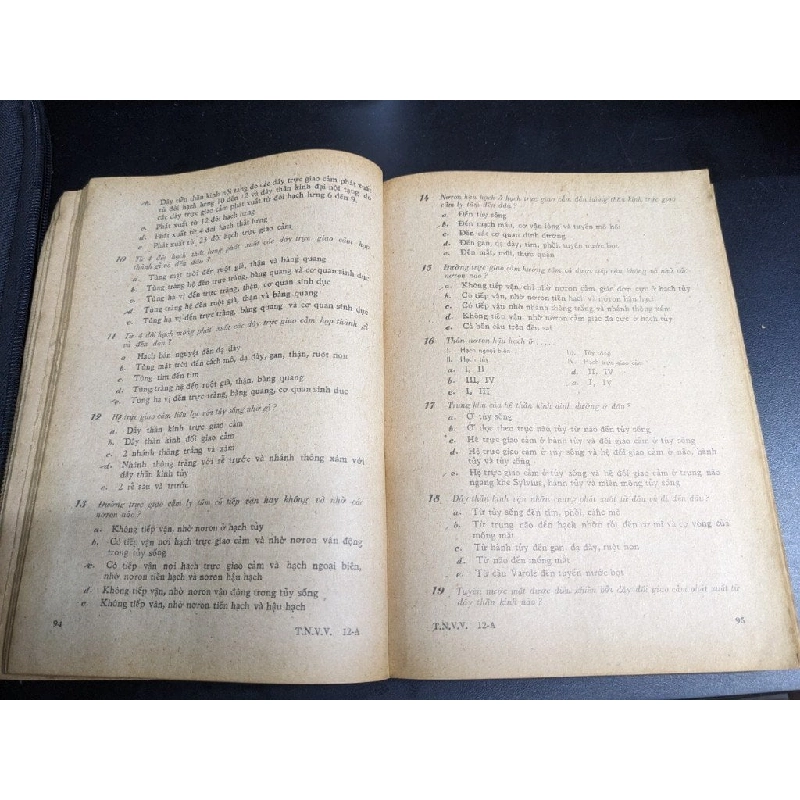 Dây trực giao cảm phát xuất
Phát xuất từ 12 đôi hạch lưng
Phát xuất từ 4 đôi hạch thắt lưng
Phát xuất từ 23 đôi hạch giao cảm
10 Từ 4 đôi hạch thắt lưng phát xuất các dây trực giao cảm hợp
thành gì và đến đâu ?
a. Tùng mặt trời đến ruột già, thận và bàng quang
b. Tùng tràng hệ đến trực tràng, bàng quang và cơ quan sinh dục
Tùng hạ vị đến trực tràng, thận, cơ quan sinh dục
Tùng tràng hệ đến ruột già, thận và bàng quang
Tùng hạ vị đến trực tràng, bàng quang và cơ quan sinh dục
11 Từ 4 đôi hạch phát xuất các dây trực giao cảm hợp thành gì
và đến đâu ?
a Hạch bán nguyệt đến dạ dày
b. Tùng mặt trời đến cách mô, dạ dày, gan, thận, ruột non
c Tùng tim đến tim
d. Tùng tràng hệ đến ruột già, thận, bàng quang
e. Tùng hạ vị đến trực tràng, bàng quang, cơ quan sinh dục
12 Hệ trực giao cảm liên lạc với tủy sống nhờ gì ?
a Dây thần kinh trực giao cảm
b. Dây thần kinh đối giao cảm
c 2 nhánh thông trắng và xám
d. Nhánh thông trắng với rễ trước và nhánh thông xám với
dây thần kinh tủy
e. 2 rễ sản và
13 Đường trực giao cảm ly tâm có tiếp vận hay không và nhờ các
nơron nào ?
a. Không tiếp vận, nhờ nơron ở hạch tủy
b. Có tiếp vận nơi hạch trực giao cảm và nhờ nơron vận động
trong tủy sống
c. Có tiếp vận nơi hạch trực giao cảm và hạch ngoại biên,
nhờ nơron tiền hạch và nơron hậu hạch
d. Không tiếp vận, nhờ nơron vận động trong tủy sống
e Không tiếp vận, nhờ nơron tiền hạch và hậu hạch
94
T.N.V.V. 12-A
14 Nơron hậu hạch ở hạch trực giao cảm đến
cảm ly tâm đến đâu ?
a. Đến tủy sống
b. Đến mạch máu, cơ vận lông và tuyến mồ hôi
c Đến các cơ quan dinh dưỡng
d. Đến gan, dạ dày, tim, phổi, tuyến nước bọt
e. Đến mắt, ruột, thực quản
15 Đường trực giao cảm hướng tâm có được tiếp vận không và nhờ các
nơron nào ?
a. Không tiếp vận, chỉ nhờ nơron cảm giác đơn cực ở hạch tủy
b. Có tiếp vận, nhờ nơron tiền hạch và nơron hậu hạch
c. Có tiếp vận nhờ nhánh thông trắng và nhánh thông xám
d. Không tiếp vận, nhờ nơron cảm giác đa cực ở hạch tủy
e. Cả bốn câu trên đều sai
16 Thân nơron hậu hạch ở .....
I.
II. Hạch
III. Tủy sống
IV. Hạch trực giao cảm
a. I, II
b. III, IV
c. I, III
d. II, IV
e. I, IV
17 Trung khu của hệ thần kinh dinh dưỡng ở đâu ?
a. Ở tủy sống
b. Ở dọc theo trục não tủy từ não đến tủy sống
c Hệ trực giao cảm ở hành tủy và đối giao cảm ở tủy sống
d. Hệ trực giao cảm ở tủy sống và hệ đối giao cảm ở não, hành
tủy và tủy sống
e. Hệ trực giao cảm ở tủy sống và hệ đối giao cảm ở trung não
ngang khe Sylvius, hành tủy và miền mông tủy sống
18 Dây thần kinh vận nhãn chung phát xuất từ đâu và đi đến đâu ?
a. Từ tủy sống đến tim, phổi, cách mô
b. Từ trung não đến hạch nhỡn rồi đến cơ mi và cơ vòng của
mống mắt
c. Từ hành tủy đến gan, dạ dày, ruột non
d. Từ não đến mống mắt
e. Từ cầu Varole đến tuyến nước bọt
19 Tuyến nước mắt được điều khiển bởi dây đối giao cảm phát xuất từ
dây thần kinh nào ?
T.N.V.V. 12-A
95